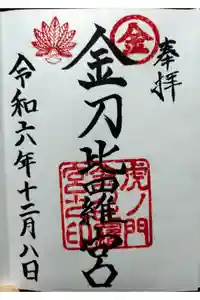 奉拝
金
金刀比羅宮
虎ノ門
金刀比羅
宮之印
令和六年十二月八日